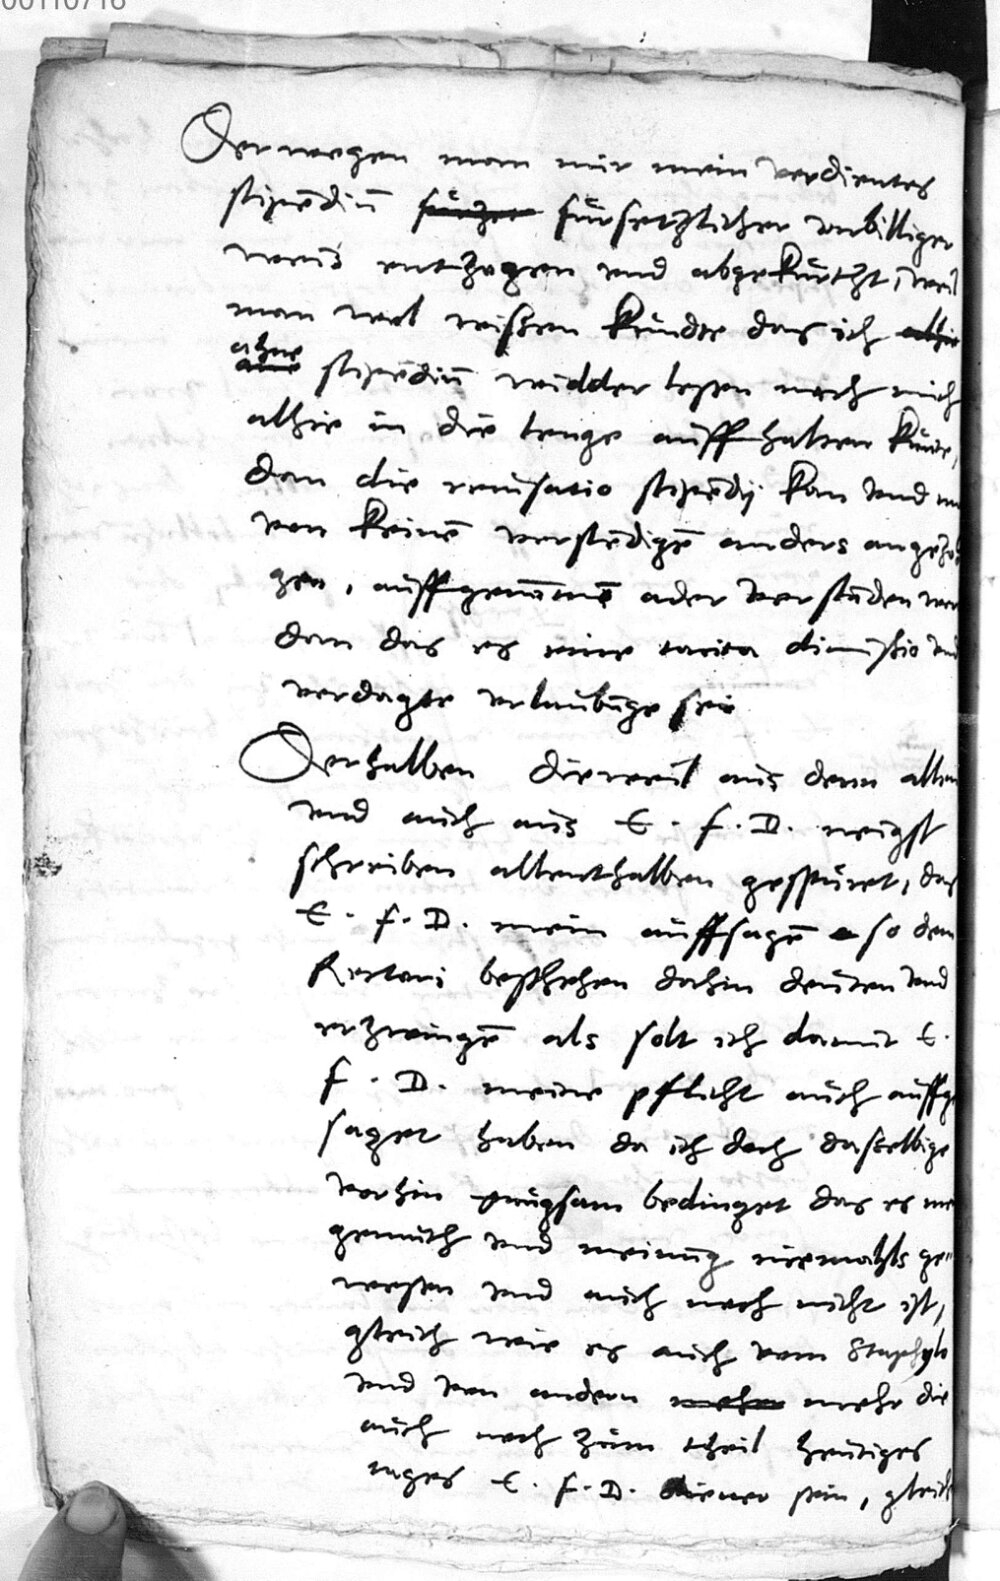 00110716
Derwegen man mir mein verdientes
stipēdiū fürsetzlicher vnbilliger
weis entzogen vnd abgekürtzt, weil
man wol wissen kundte das ich alhie
ahne stipēdiū widder lesen noch mich
alhie in die lenge auffhalten kunte,
dan die reuisatio stipēdij kan vnd
von keinē verstēdigē anders angezo
gen, auffgenūmē ader verstāden wer
dan das es eine tacita dimissio vnd
verdagte vrlaubūge sei
Derhalben dieweil aus dem allen
vnd auch aus E. f. D. neigst
schreiben allenthalben gespüret, das
E. f. D. mein auffsagē so dem
Rectori beschehen dahin deuten vnd
erzwingē als solt ich damit E.
f. D. meine pflicht auch auffge
saget haben da ich doch dasselbige
vorhin gnugsam bedinget das es me
gemuth vnd meinūg niemahls ge-
wesen vnd auch noch nicht ist,
gleich wie es auch vom Staphylo
vnd von andern mehr mehr die
auch noch zum theil heutiges
tages E. f. D. diener sein, gleich